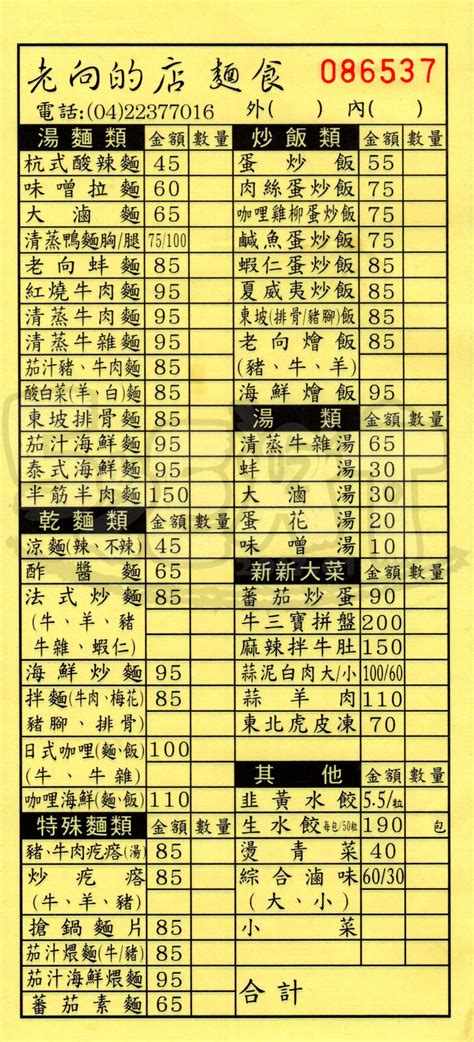 老向的店 麵食 086537
電話:(04)22377016 外( ) 內( )
湯麵類 金額 數量
杭式酸辣麵 45
味噌拉麵 60
大滷麵 65
清蒸鴨麵胸/腿 75/100
老向蚌麵 85
紅燒牛肉麵 95
清蒸牛肉麵 95
清蒸牛雜麵 95
茄汁豬、牛肉麵 85
酸白菜(羊、白)麵 85
東坡排骨麵 85
茄汁海鮮麵 95
泰式海鮮麵 95
半筋半肉麵 150
乾麵類 金額 數量
涼麵(辣、不辣) 45
酢醬麵 65
法式炒麵 85
(牛、羊、豬
牛雜、蝦仁)
海鮮炒麵 95
拌麵(牛肉、梅花) 85
豬腳、排骨)
日式咖哩(麵、飯) 100
(牛、牛雜)
咖哩海鮮(麵、飯) 110
特殊麵類 金額 數量
豬、牛肉疙瘩(湯) 85
炒疙瘩 85
(牛、羊、豬)
搶鍋麵片 85
茄汁煨麵(牛/豬) 85
茄汁海鮮煨麵 95
蕃茄素麵 65
炒飯類 金額 數量
蛋炒飯 55
肉絲蛋炒飯 75
咖哩雞柳蛋炒飯 75
鹹魚蛋炒飯 85
蝦仁蛋炒飯 85
夏威夷炒飯 85
東坡(排骨/豬腳)飯 85
老向燴飯 85
(豬、牛、羊)
海鮮燴飯 95
湯類 金額 數量
清蒸牛雜湯 65
蚌湯 30
大滷湯 30
蛋花湯 20
味噌湯 10
新新大菜 金額 數量
蕃茄炒蛋 90
牛三寶拼盤 200
麻辣拌牛肚 150
蒜泥白肉大/小 100/60
蒜羊肉 110
東北虎皮凍 70
其他 金額 數量
韭黃水餃 5.5/粒
生水餃每包/50粒 190 包
燙青菜 40
綜合滷味 60/30
(大、小)
小菜
合計